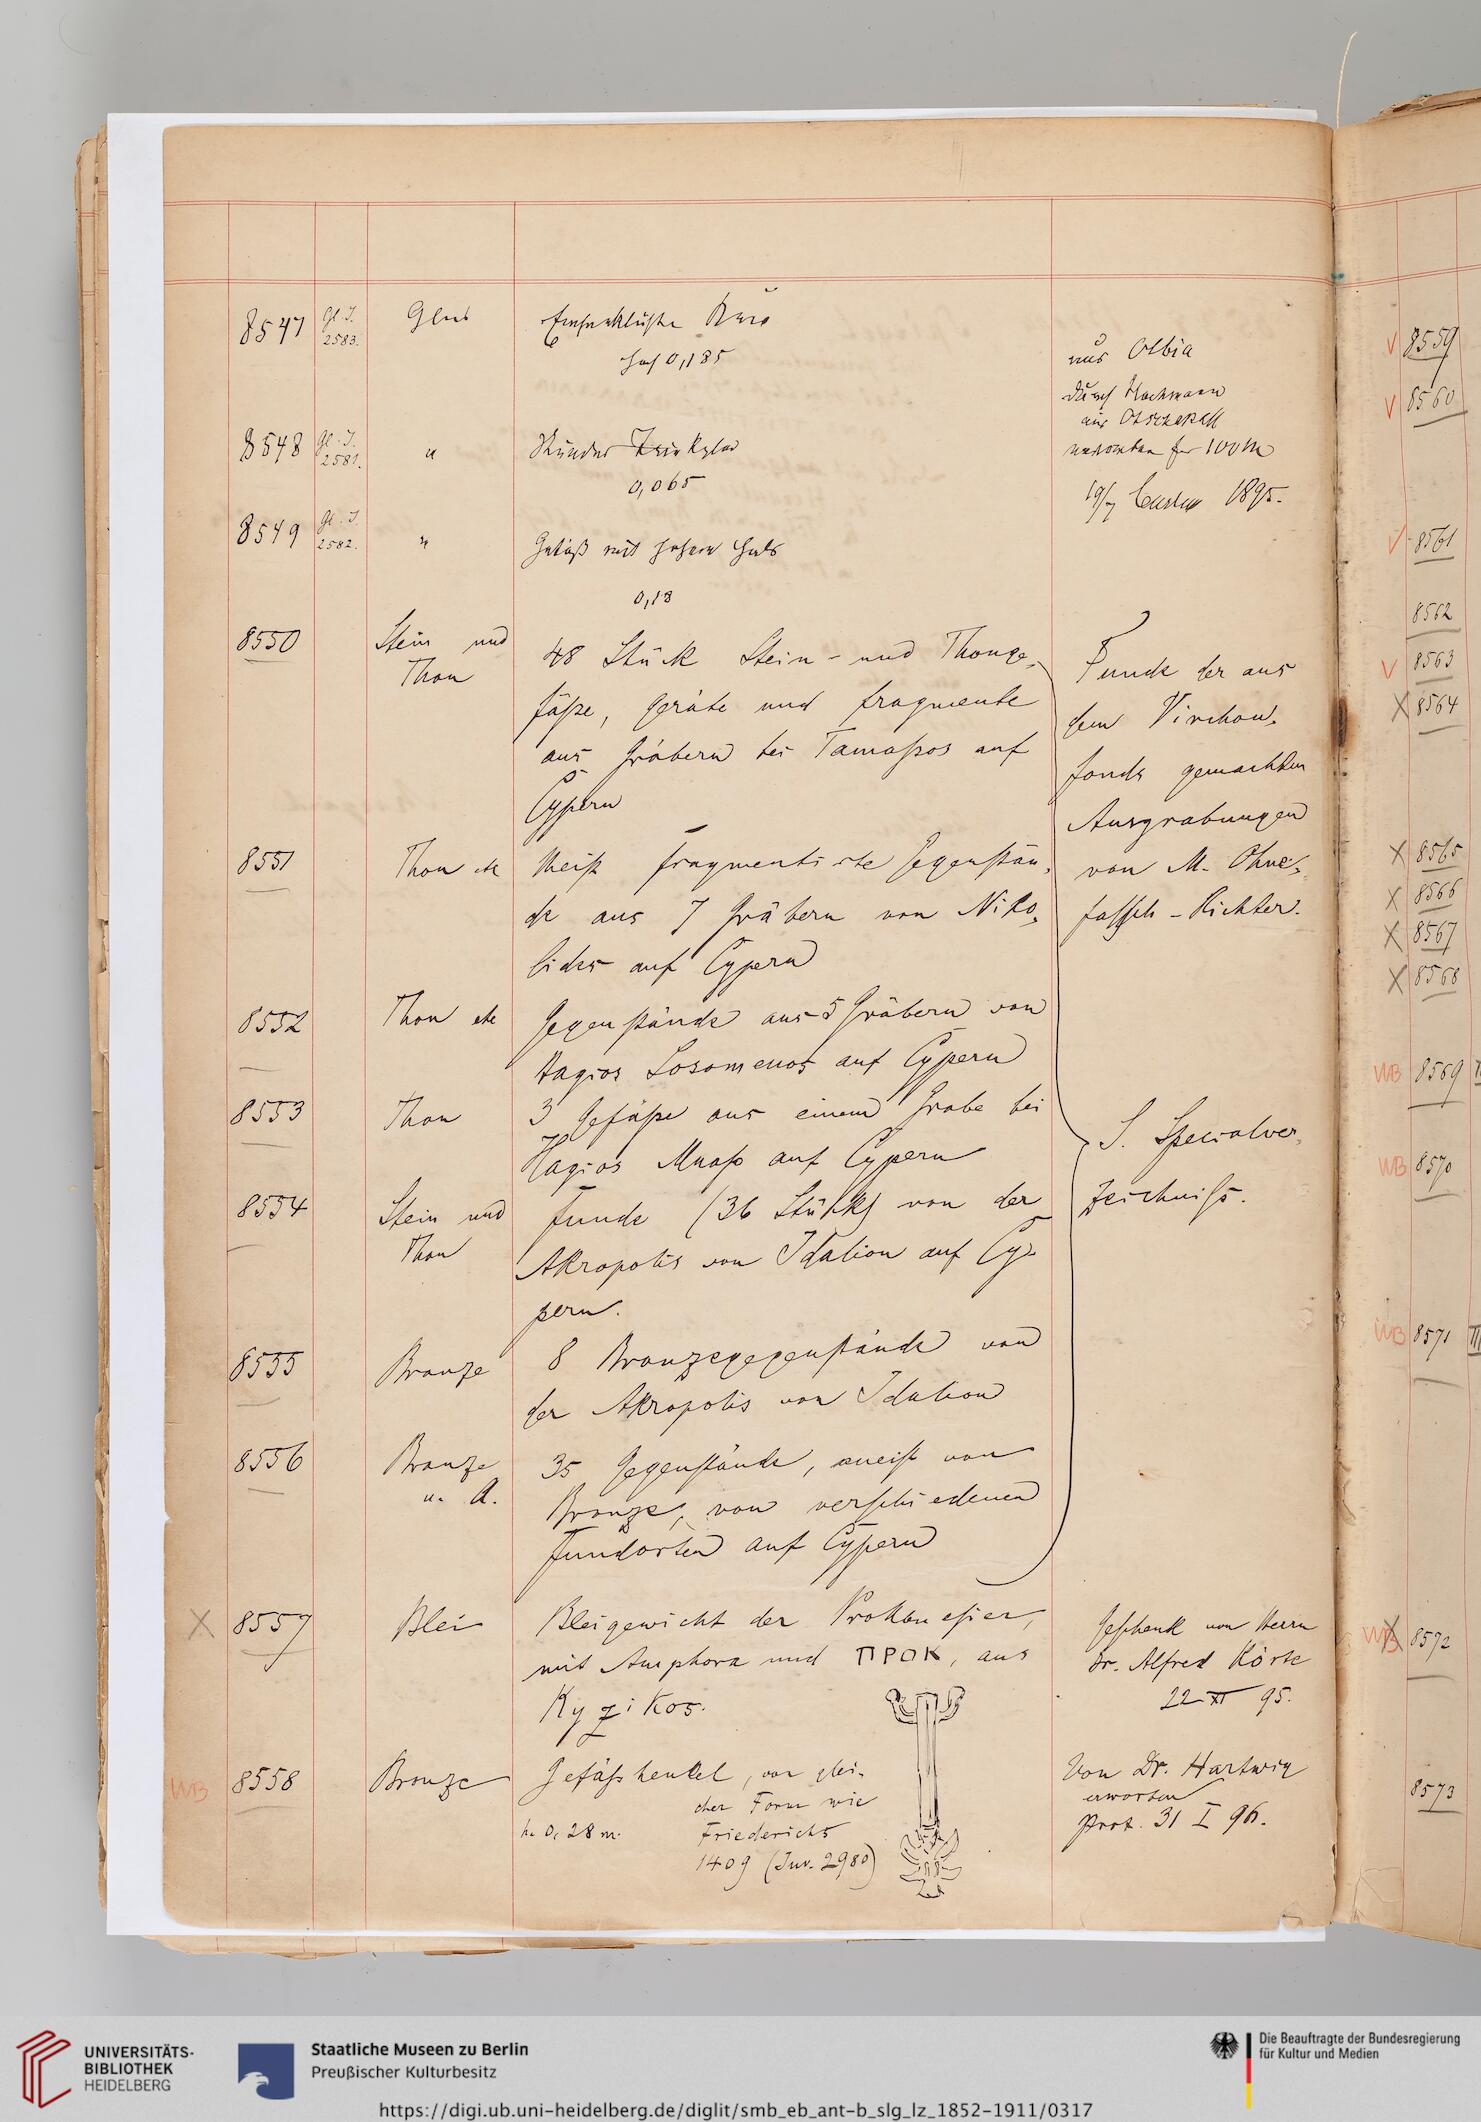 8547
Gl. I.
2583.
Glas
hoch 0,185
aus Olbia
durch
aus
erworben für 100 M
1895.
8548
Gl. I.
2581.
"
Runder
0,065
8549
Gl. I.
2582.
"
Gefäß mit hohem Hals
0,18
8550
Stein und
Thon
48 Stück Stein- und Thonge-
fäße, Geräte und Fragmente
aus Gräbern bei Tamaßos auf
Cypern
Funde der aus
dem Virchow-
fonds gemachten
Ausgrabungen
von M. Ohne-
falsch-Richter.
8551
Thon etc
Meist fragmentirte Gegenstän-
de aus 7 Gräbern von Niko-
lides auf Cypern
8552
Thon etc
Gegenstände aus 5 Gräbern von
Hagios Sosomenos auf Cypern
8553
Thon
3 Gefäße aus einem Grabe bei
Hagios Mnaß auf Cypern
S. Specialver-
zeichniß.
8554
Stein und
Thon
Funde (36 Stück) von der
Akropolis von Idalion auf Cy-
pern.
8555
Bronze
8 Bronzegegenstände von
der Akropolis von Idalion
8556
Bronze
u. A.
35 Gegenstände, meist von
Bronze, von verschiedenen
Fundorten auf Cypern
X 8557
Blei
Bleigewicht der Prokonesier,
mit Amphora und ΠΡΟΚ, aus
Kyzikos.
Geschenk von Herrn
Dr. Alfred Körte
22 XI 95.
WB 8558
Bronze
Gefäßhenkel, von glei-
cher Form wie
h. 0,28 m.
Friederichs
1409 (Inv. 2980)
Von Dr. Hartwig
erworben
Prot. 31 I 96.
V 8559
V 8560
V 8561
8562
V 8563
X 8564
X 8565
X 8566
X 8567
X 8568
WB 8569
WB 8570
WB 8571
WB X 8572
8573
UNIVERSITÄTS-
BIBLIOTHEK
HEIDELBERG
Staatliche Museen zu Berlin
Preußischer Kulturbesitz
Die Beauftragte der Bundesregierung
für Kultur und Medien
https://digi.ub.uni-heidelberg.de/diglit/smb_eb_ant-b_slg_lz_1852-1911/0317